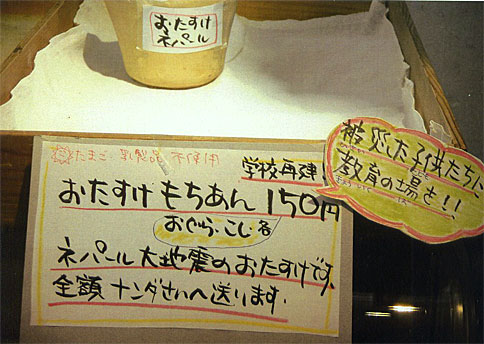 おたすけ
ネパール
たまご 乳製品 不使用
学校再建!
おたすけ もちあん 150円
おぐら・こし・各
ネパール大地震のおたすけです。
全額 ナンダさいへ送ります。
被災した子供たちに
教育の場を!!